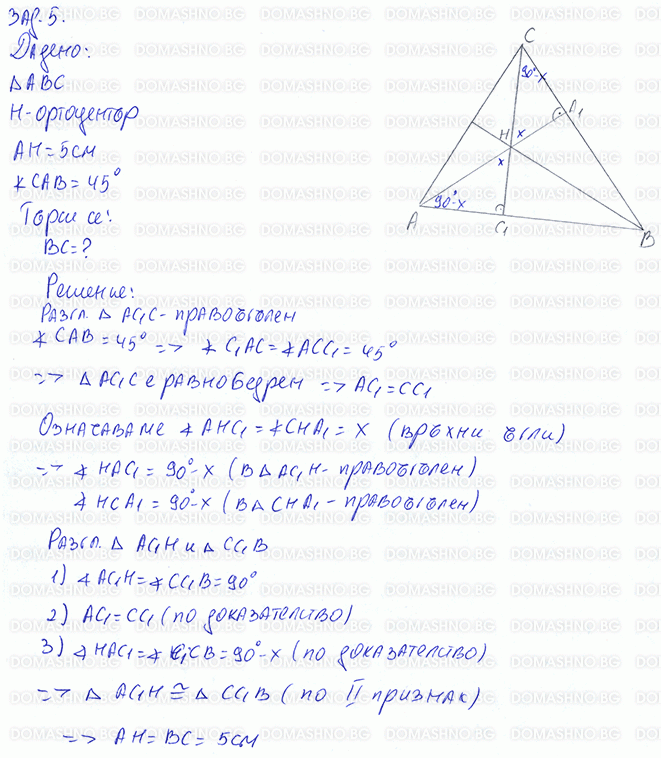 Зад. 5.
Дадено:
△ABC
H-ортоцентър
AH=5см
∢CAB=45°
Търси се:
BC=?
Решение:
Разгл. △ AC₁C - правоъгълен
∢CAB=45° => ∢C₁AC=∢ACC₁=45°
=> △AC₁C е равнобедрен => AC₁=CC₁
Означаваме ∢AHC₁=∢CHA₁=x (връхни ъгли)
=> ∢HAC₁=90°-x (в △AC₁H-правоъгълен)
∢HCA₁=90°-x (в △CHA₁-правоъгълен)
Разгл. △ AC₁H и △CC₁B
1) ∢AC₁H=∢CC₁B=90°
2) AC₁=CC₁ (по доказателство)
3) ∢HAC₁=∢C₁CB=90°-x (по доказателство)
=> △ AC₁H ≅ △CC₁B (по II признак)
=> AH=BC=5см
C
90°-x
A₁
H
x
x
A
90°-x
C₁
B
DOMASHNO.BG